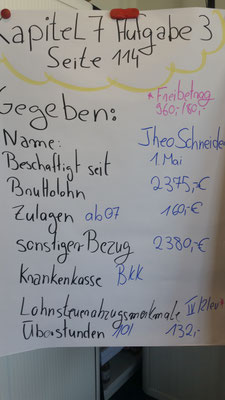 Kapitel 7 Aufgabe 3
Seite 114
Gegeben:
* Freibetrag
960,/80,-
Name: Theo Schneider
Beschäftigt seit 1. Mai
Bruttolohn 2375,-€
Zulagen ab 07 160,-€
sonstiger Bezug 2380,-€
Krankenkasse BKK
Lohnsteuerabzugsmerkmale IV
Überstunden 132,-